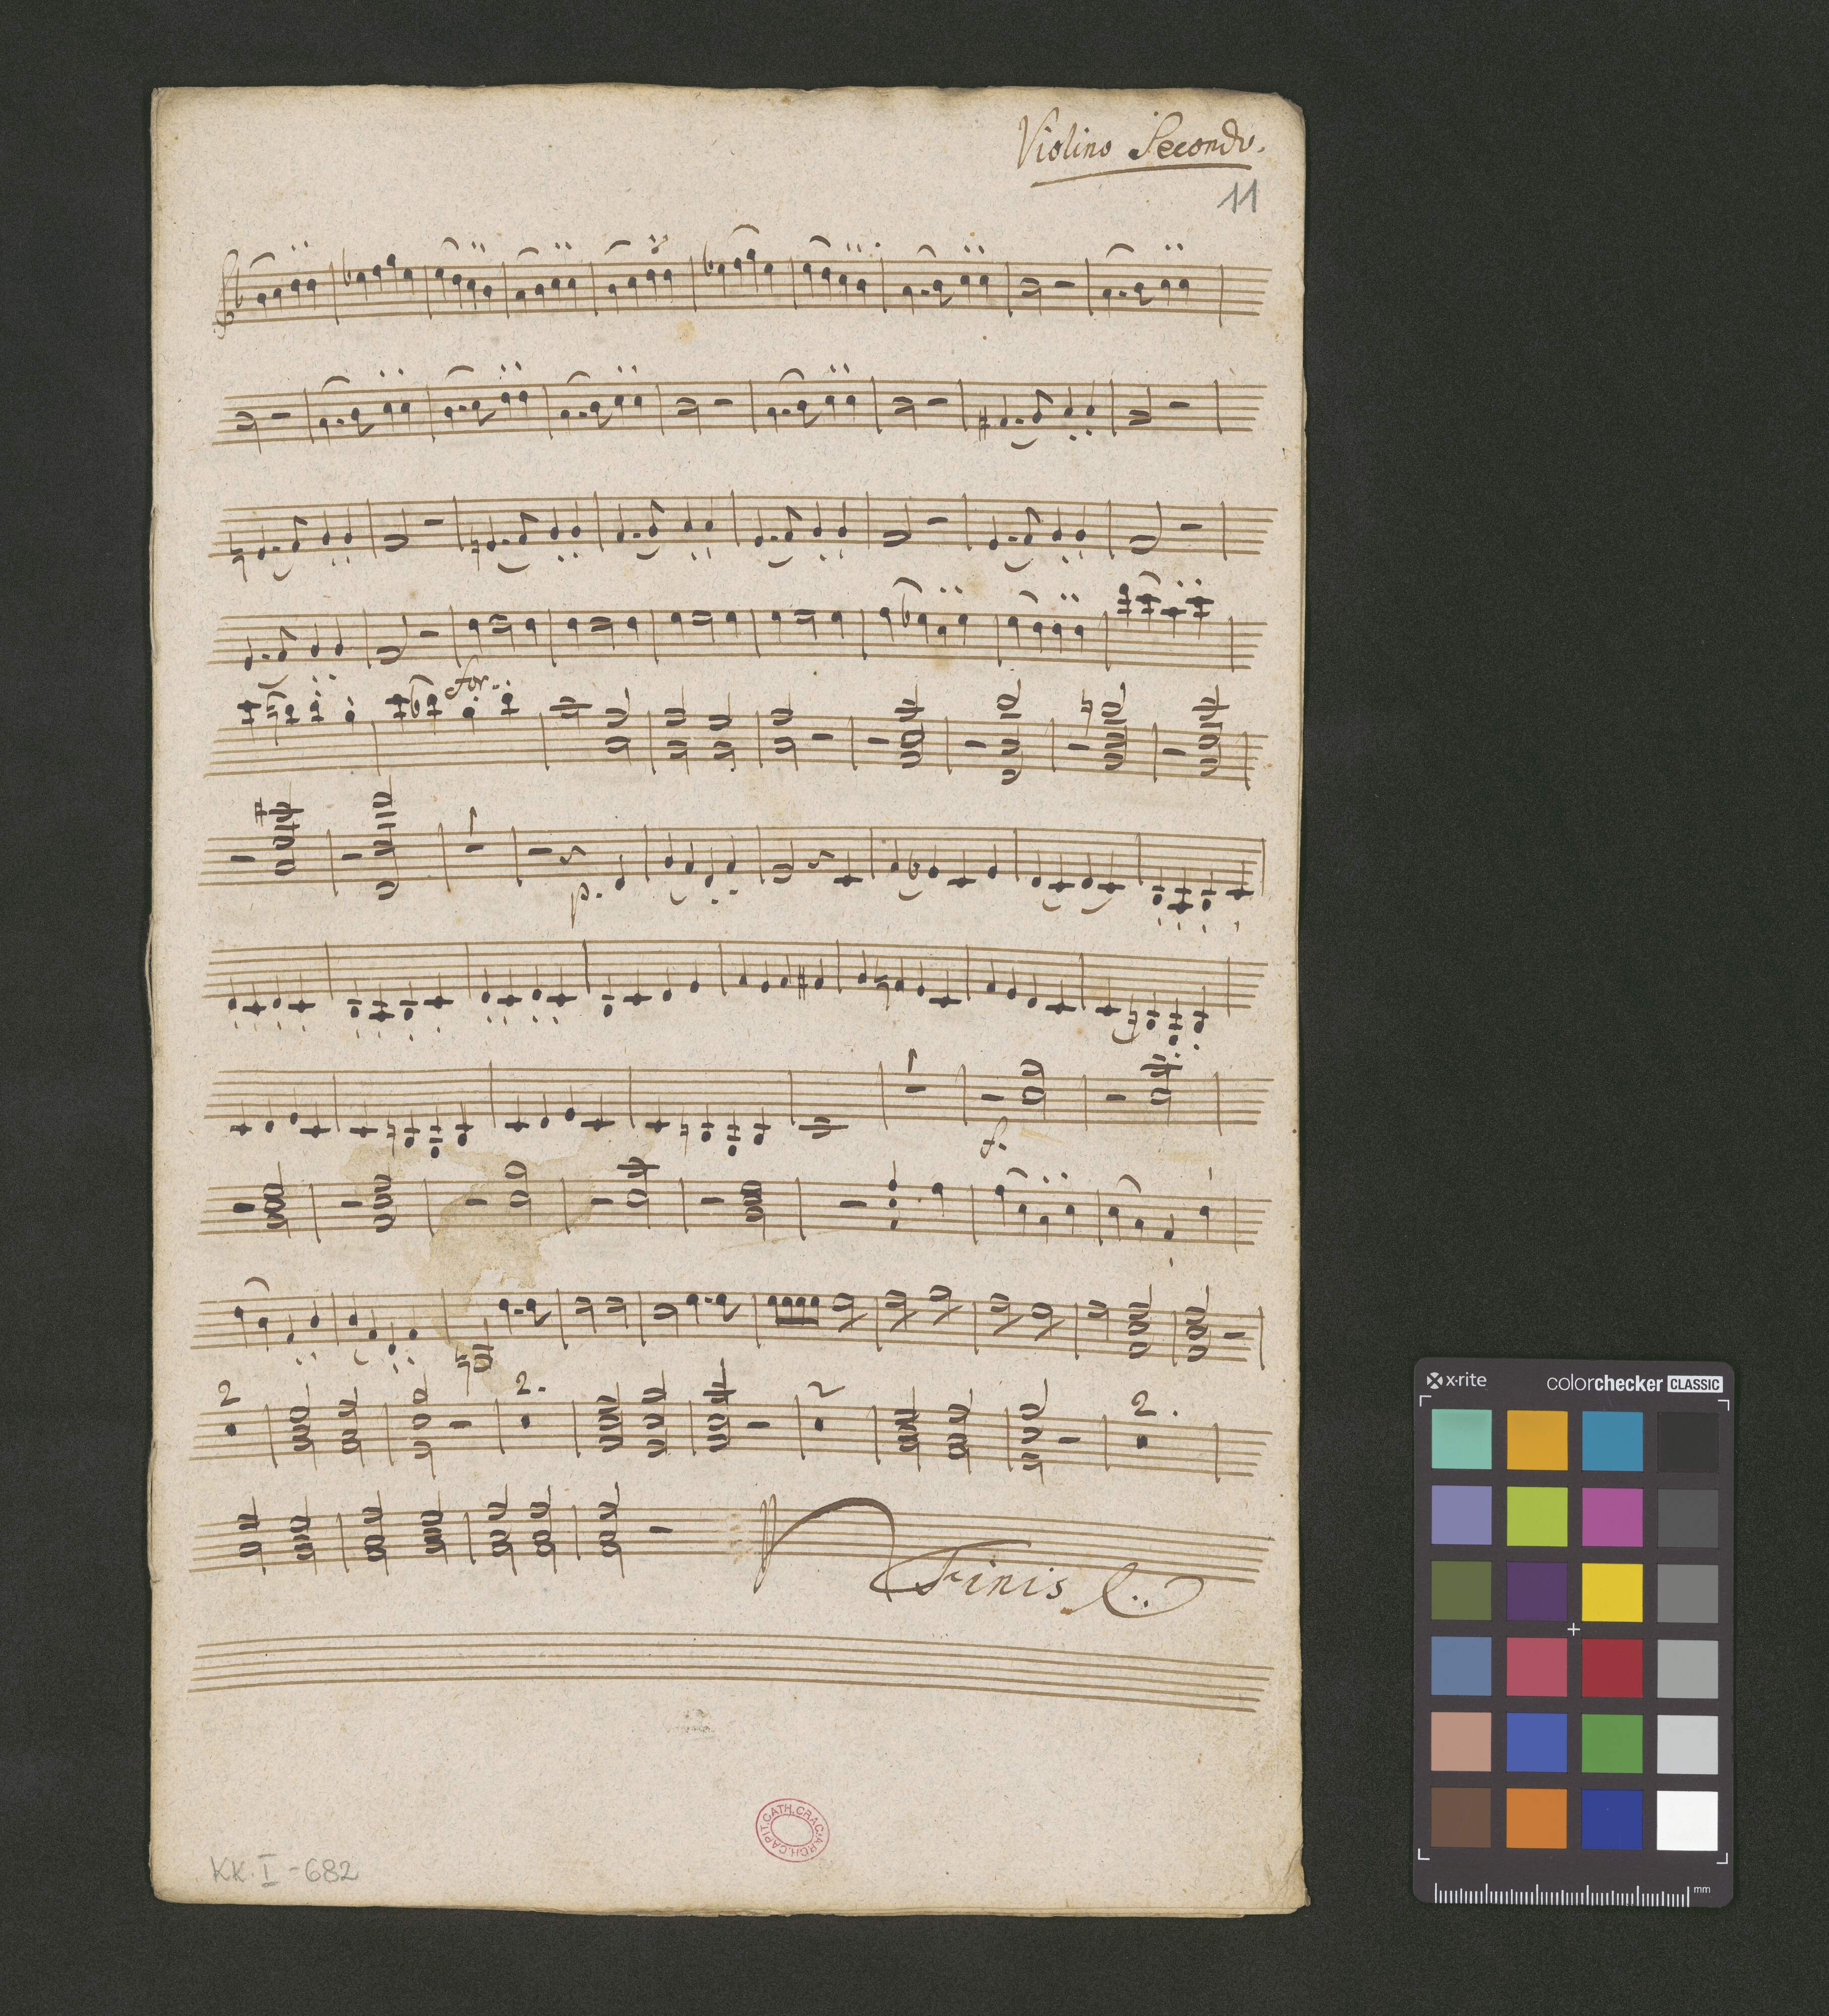 Violino Secondo.
11
for.
p.
f.
2
2.
2
2.
Finis
CAPIT. CATH. CRAC. ARCH.
KK. I - 682
x·rite
colorchecker CLASSIC
mm